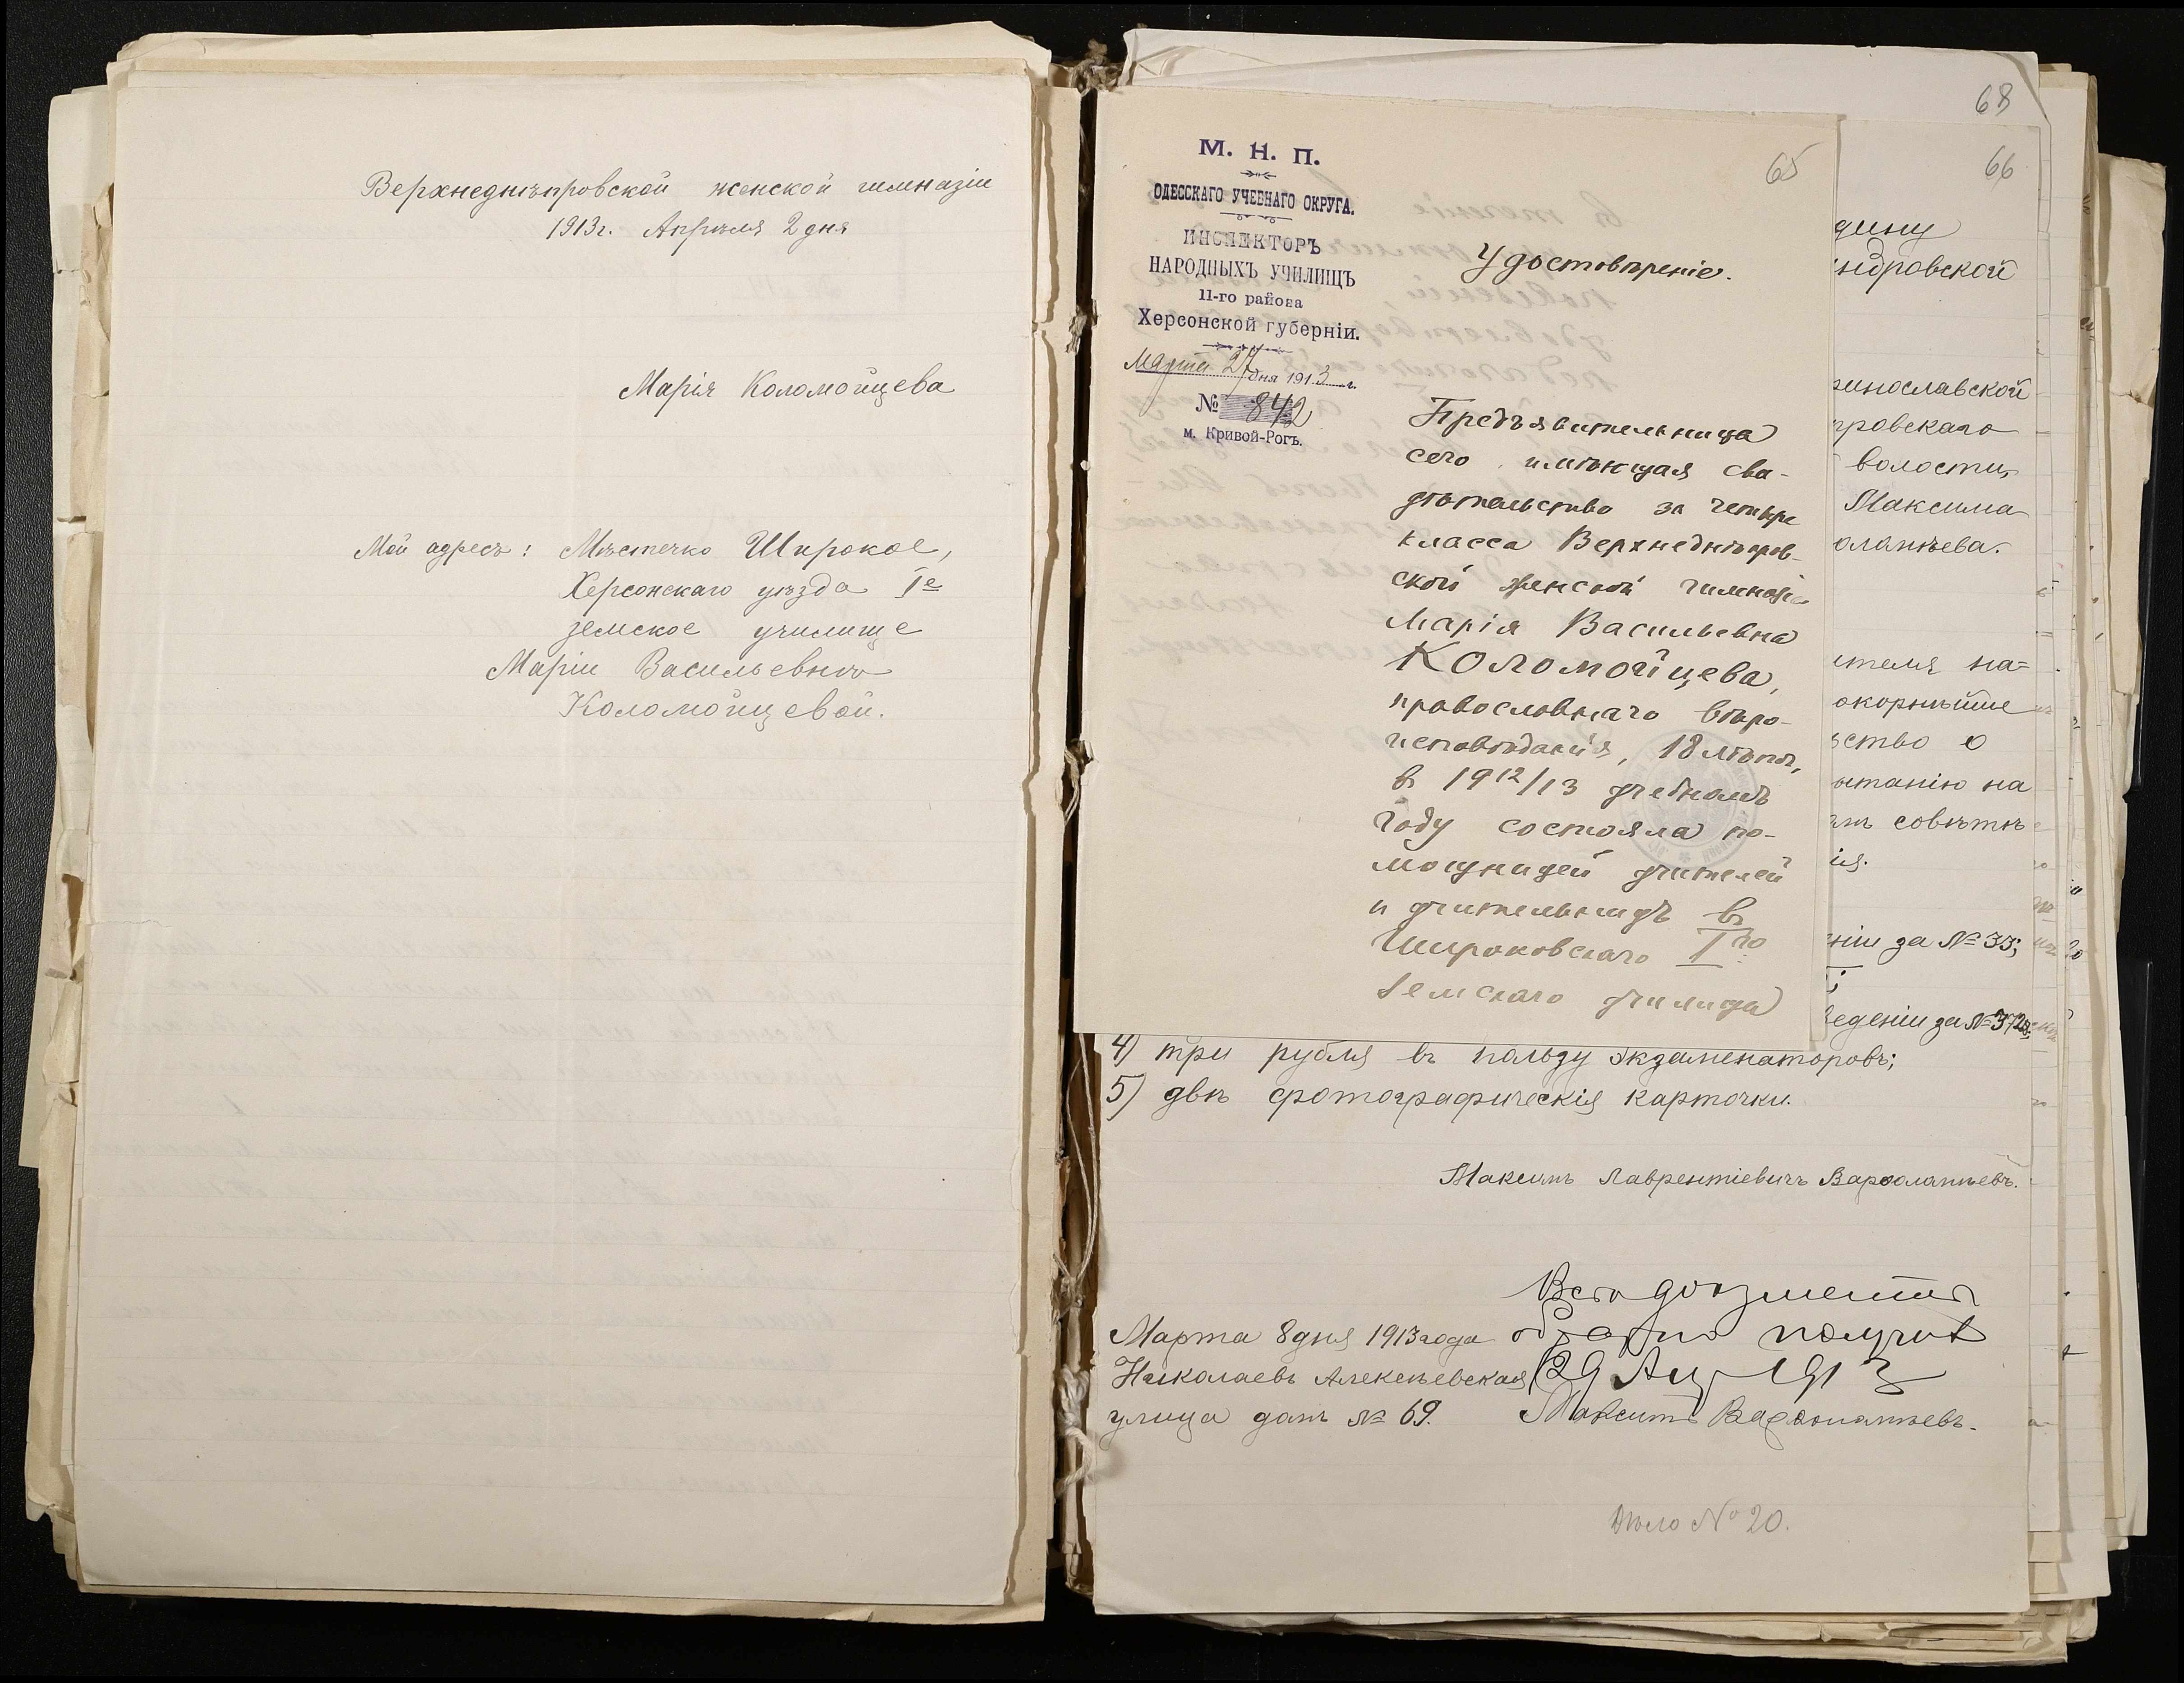 Верхнеднѣпровской женской гимназіи
1913г. Апрѣля 2 дня
Марія Коломойцева
Мой адресъ: Мѣстечко Широкое,
Херсонскаго уѣзда Iе
земское училище
Маріи Васильевнѣ
Коломойцевой.
68
66
65
М. Н. П.
ОДЕССКАГО УЧЕБНАГО ОКРУГА.
ИНСПЕКТОРЪ
НАРОДНЫХЪ УЧИЛИЩЪ
11-го района
Херсонской губерніи.
Марта 27 дня 1913 г.
№ 842
м. Кривой-Рогъ.
Удостовѣреніе.
Предъявительница
сего имѣющая сви-
дѣтельство за четыре
класса Верхнеднѣпров-
ской женской гимназіи
Марія Васильевна
Коломойцева,
православнаго вѣро-
исповѣданія, 18 лѣтъ,
въ 1912/13 учебномъ
году состояла по-
мощницей учителей
и учительницъ въ
Широковскаго Iго
земскаго училища
дину
ндровской
инославской
ровскаго
волости,
Максима
оламѣева.
ителя на-
окорнѣйше
ство о
ытанію на
омъ совѣтѣ
ія.
ніи за № 33;
веденіи за № 3728;
4) три рубля въ пользу экзаменаторовъ;
5) двѣ фотографическія карточки.
Максимъ Лаврентіевичъ Варѳоламѣевъ.
Марта 8 дня 1913 года
Николаевъ Алексѣевская
улица домъ № 69.
Всѣ документы
обратно получилъ
29 Апр 1913
Максимъ Варѳоламѣевъ.
Дѣло № 20.